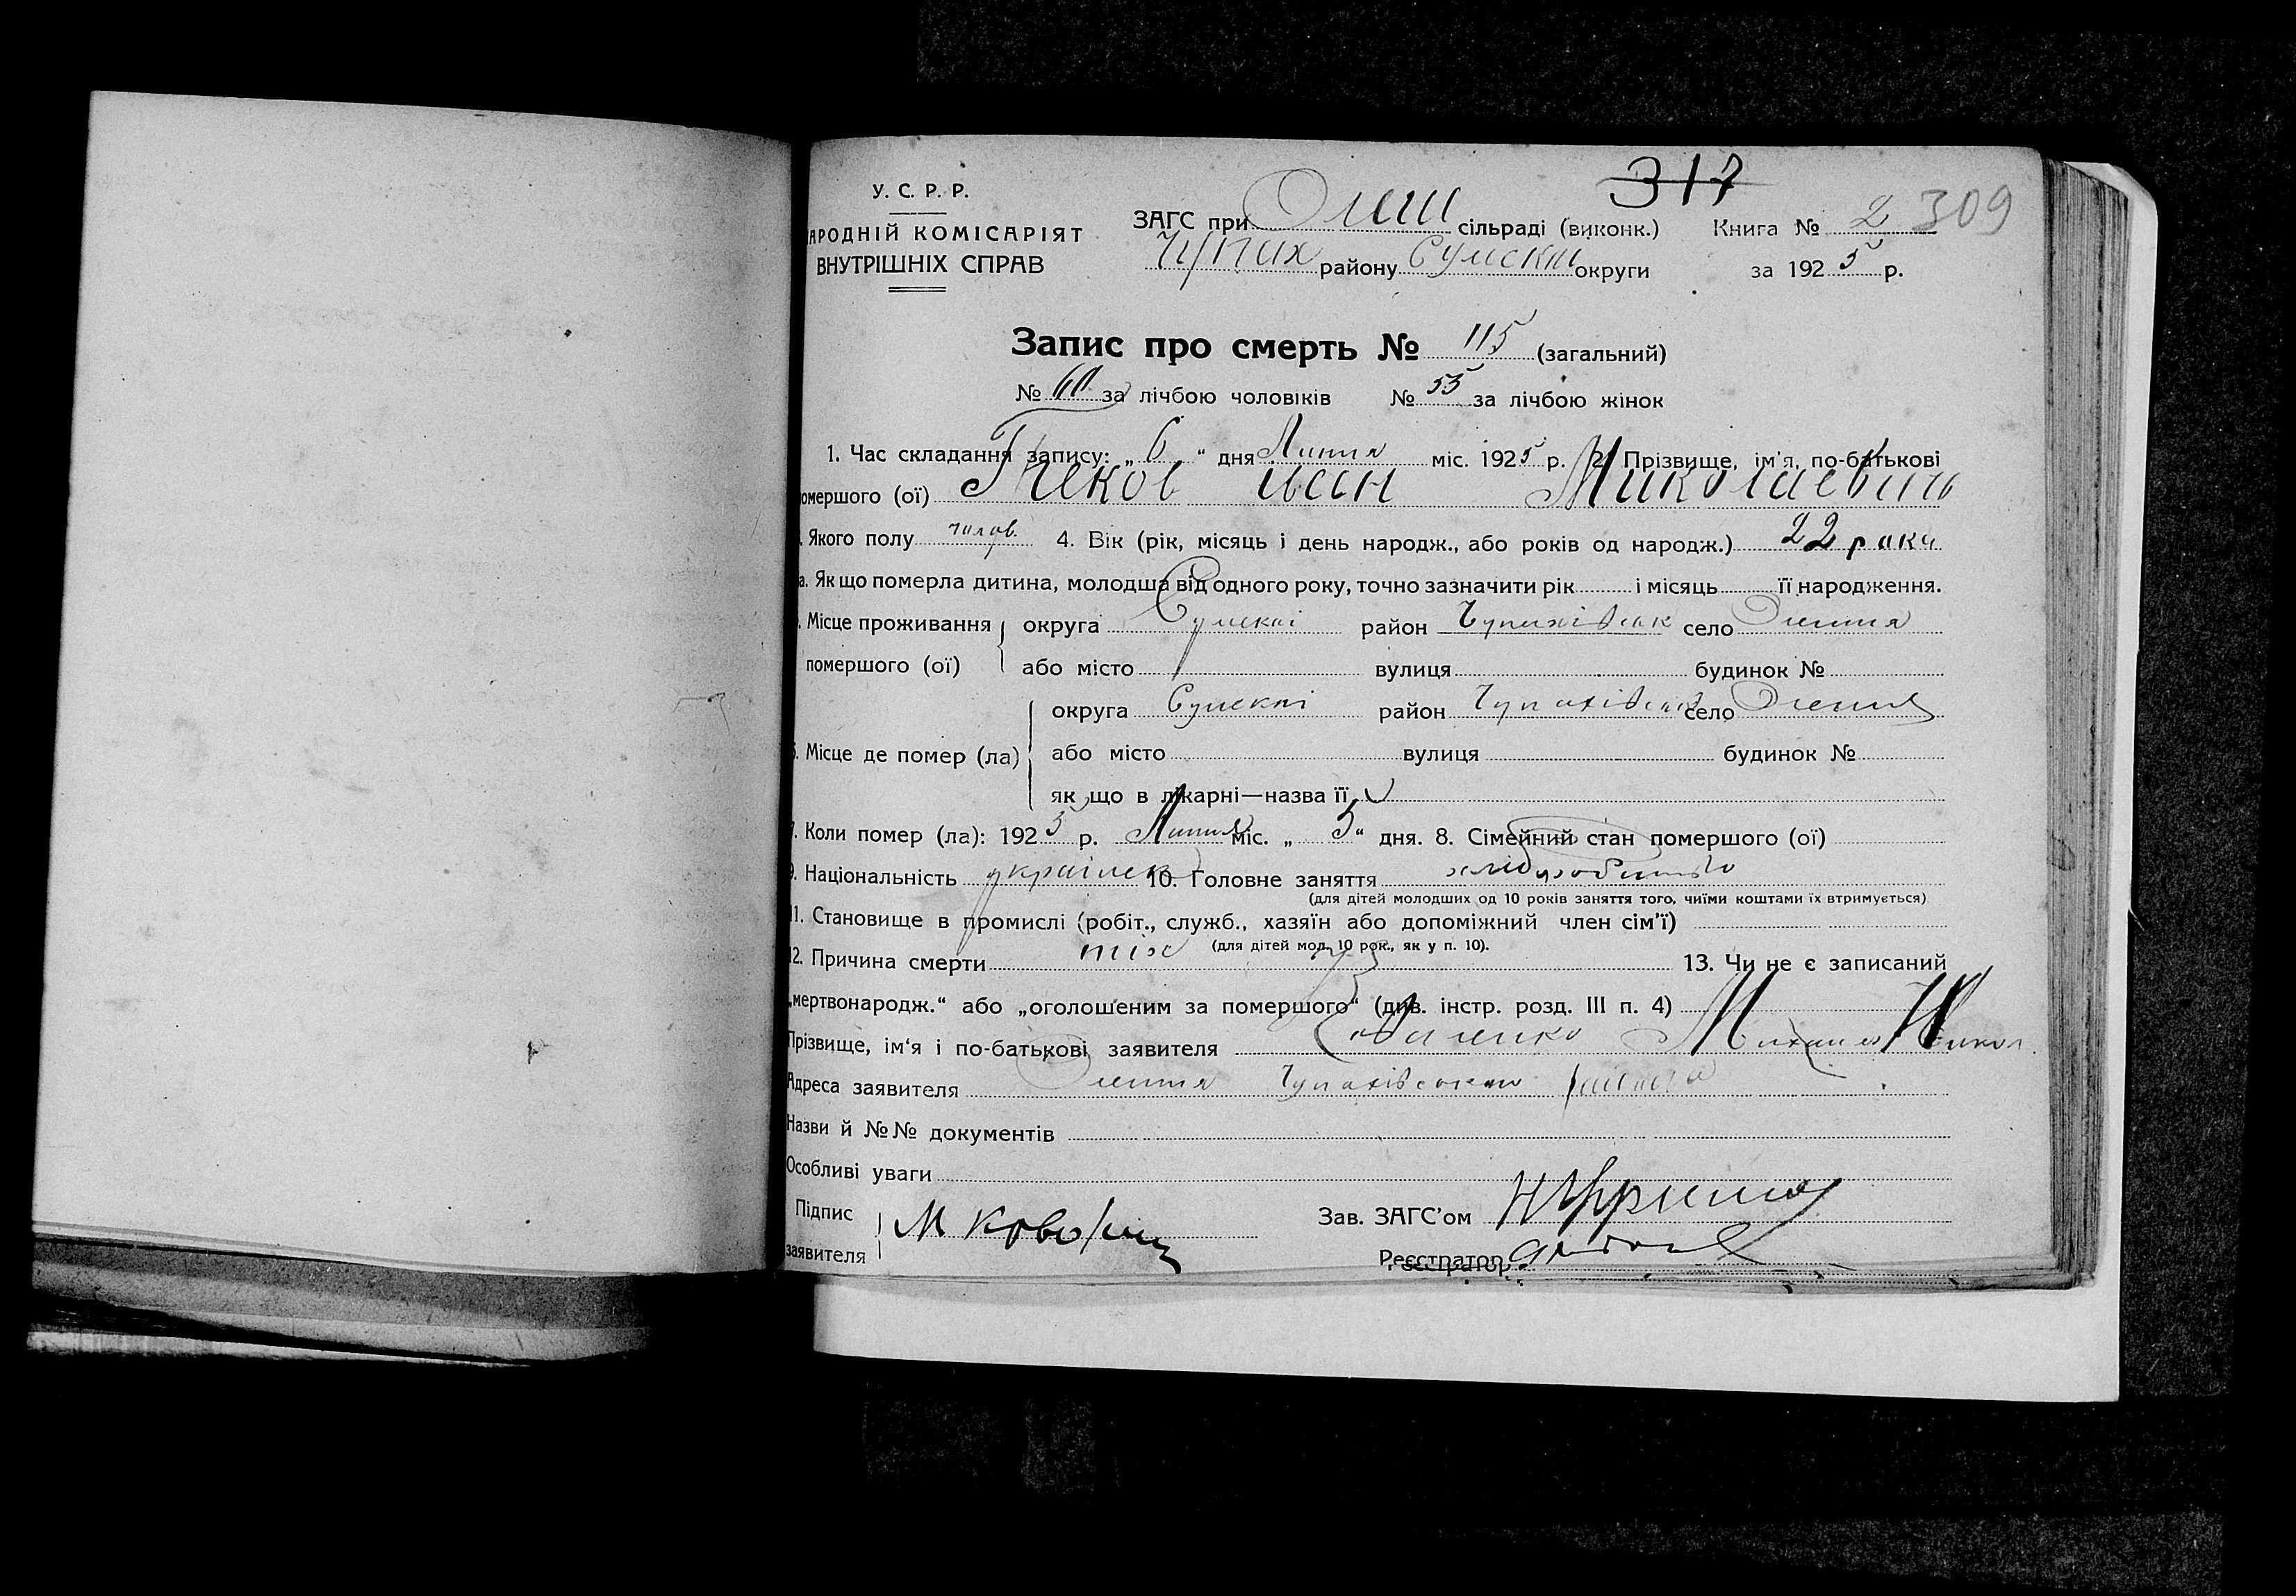 317
У. С. Р. Р.
АРОДНІЙ КОМІСАРІЯТ
ВНУТРІШНІХ СПРАВ
ЗАГС при Олеш сільраді (виконк.) Книга № 2 309
Чупах району Сумскои округи за 1925 р.
Запис про смерть № 115 (загальний)
№ 60 за лічбою чоловіків № 55 за лічбою жінок
1. Час складання запису: „ 6 “ дня Липня міс. 1925 р. 2. Прізвище, ім'я, по-батькові
омершого (ої) иван Миколаевич
Якого полу чолов. 4. Вік (рік, місяць і день народж., або років од народж.) 22 роки
а. Як що померла дитина, молодша від одного року, точно зазначити рік і місяць її народження.
Місце проживання округа Сумскої район Чупахівськ село
помершого (ої) або місто вулиця будинок №
округа Сумскої район Чупахівськ село
Місце де помер (ла) або місто вулиця будинок №
як що в лікарні—назва її
7. Коли помер (ла): 1925 р. Липня міс. „ 5 “ дня. 8. Сімейний стан помершого (ої)
9. Національність українец 10. Головне заняття хліборобство
(для дітей молодших од 10 років заняття того, чиїми коштами їх втримується)
11. Становище в промислі (робіт., служб., хазяїн або допоміжний член сім'ї)
(для дітей мол. 10 рок., як у п. 10).
12. Причина смерти 13. Чи не є записаний
„мертвонародж.“ або „оголошеним за помершого“ (див. інстр. розд. III п. 4)
Прізвище, ім'я і по-батькові заявителя Михаил Никол.
Адреса заявителя Чупахівського района
Назви й №№ документів
Особливі уваги
Підпис М
заявителя
Зав. ЗАГС'ом
Реєстратор